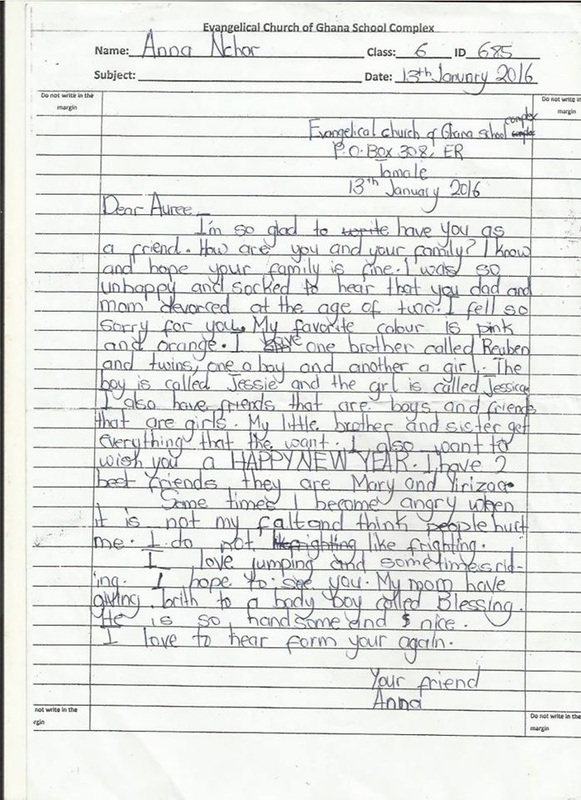 Evangelical Church of Ghana School Complex
Name: Anna Nchor Class: 6 ID 685
Subject: Date: 13th January 2016
Do not write in the
margin
Do not write in
margin
complex
Evangelical church of Ghana school
P.O. Box 308, ER
Tamale
13th January 2016
Dear Auree
I'm so glad to write have you as
a friend. How are you and your family? I know
and hope your family is fine. I was so
unhappy and socked to hear that you dad and
mom devorced at the age of two. I fell so
sorry for you. My favorite colour is pink
and orange. I have one brother called Reuben
and twins, one a boy and another a girl. The
boy is called Jessie and the girl is called Jessica
I also have friends that are boys and friends
that are girls. My little brother and sister get
everything that the want. I also want to
wish you a HAPPY NEW YEAR. I have 2
best friends they are Mary and Yirizaa
Some times I become angry when
it is not my falt and think people hurt
me. I do not like frighting.
I love jumping and sometimes rid-
ing. I hope to see you. My mom have
giving brith to a body boy called Blessing.
He is so handsome and nice.
I love to hear form your again.
Your friend
Anna
not write in the
rgin
Do not write in the
margin